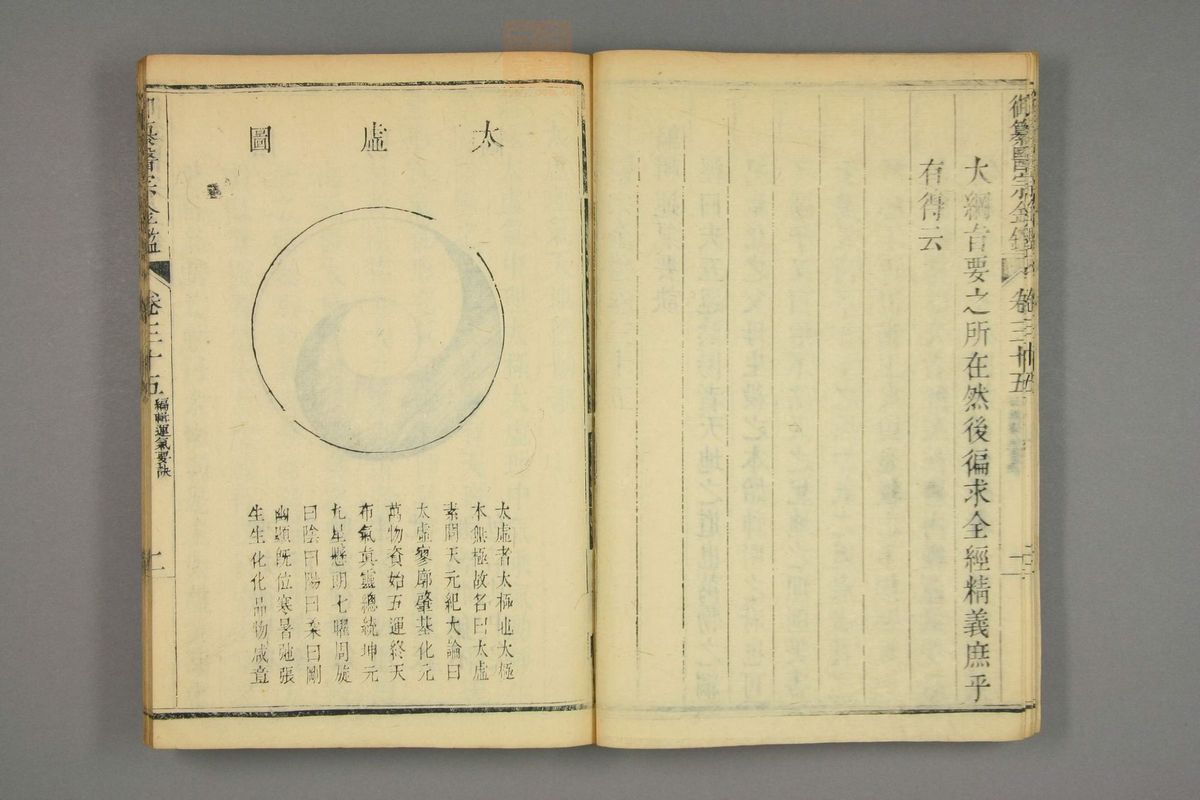 御纂醫宗金鑑
卷三十五
大綱旨要之所在然後徧求全經精義庶乎
有得云
太虛圖
太虛者太極也太極
本無極故名曰太虛
素問天元紀大論曰
太虛寥廓肇基化元
萬物資始五運終天
布氣真靈總統坤元
九星懸朗七曜周旋
曰陰曰陽曰柔曰剛
幽顯旣位寒暑弛張
生生化化品物咸章
纂醫宗金鑑
卷三十五
編輯運氣要訣